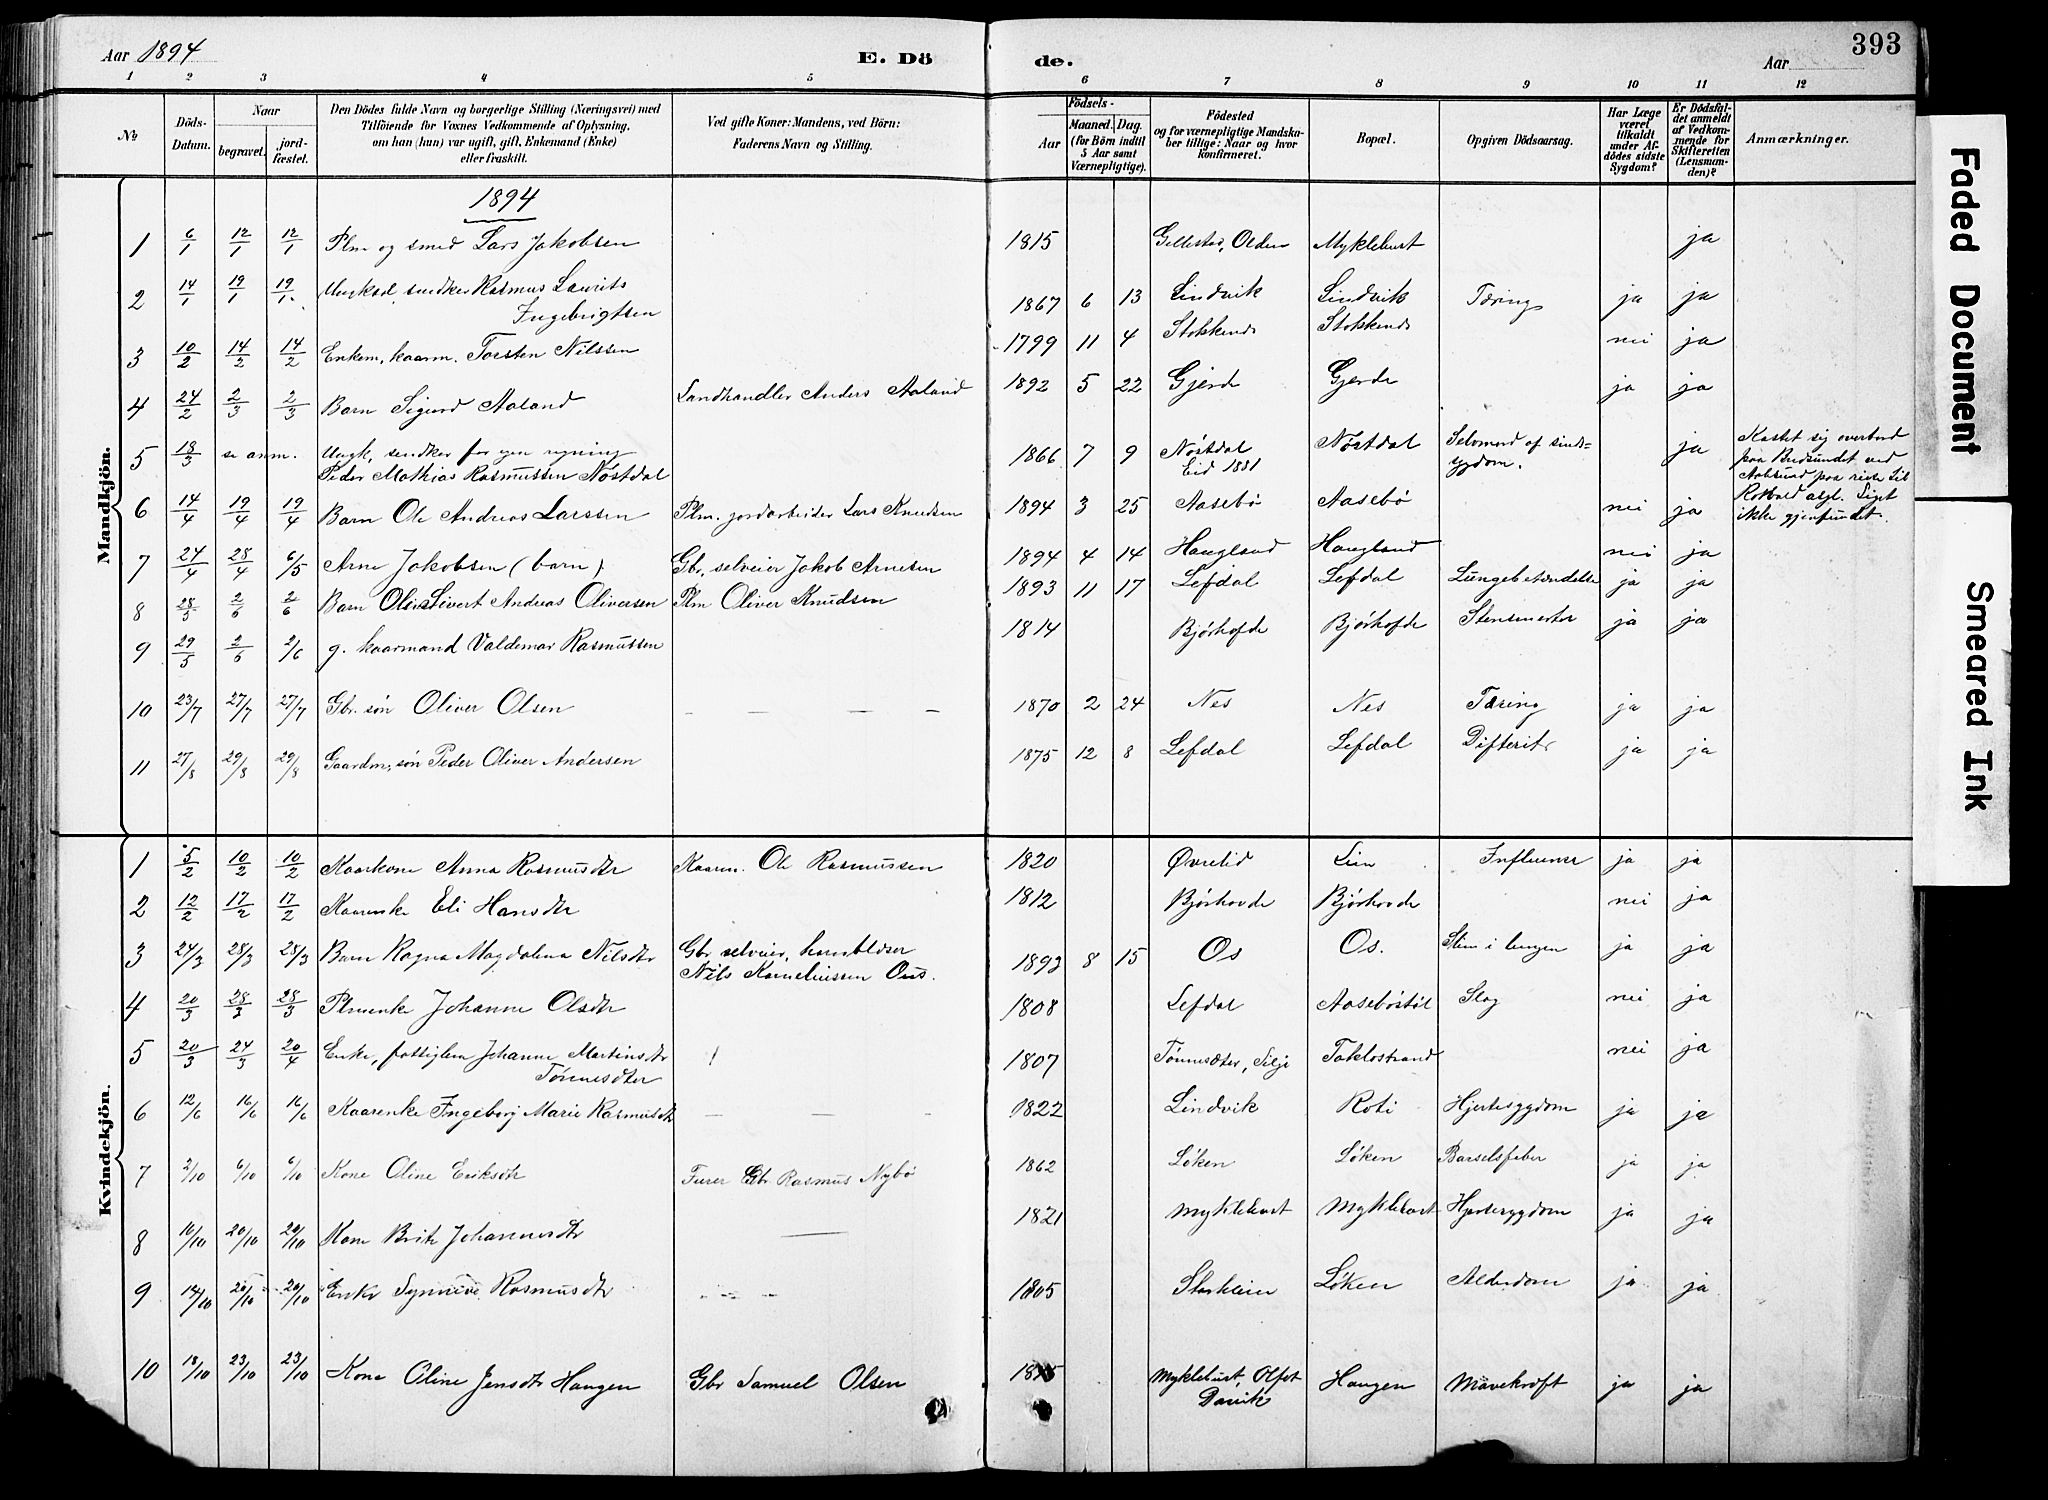 Aar 1894
E. Dö
de.
Aar
393
1 2 3 4 5 6 7 8 9 10 11 12
No
Döds-Datum.
Naar
begravet.
jord-fæstet.
Den Dödes fulde Navn og borgerlige Stilling (Næringsvei) med
Tilföiende for Voxnes Vedkommende af Oplysning,
om han (hun) var ugift, gift, Enkemand (Enke)
eller fraskilt.
Ved gifte Koner: Mandens, ved Börn:
Faderens Navn og Stilling.
Födsels-
Aar
Maaned. Dag.
(for Börn indtil
5 Aar samt
Værnepligtige).
Födested
og for værnepligtige Mandska-
ber tillige: Naar og hvor
konfirmeret.
Bopæl.
Opgiven Dödsaarsag.
Har Læge
været
tilkaldt
under Af-
dödes sidste
Sygdom?
Er Dödsfal-
det anmeldt
af Vedkom-
mende for
Skifteretten
(Lensman-
den)?
Anmærkninger.
Mandkjön.
1894
1 6/1 12/1 12/1 Plm og smed Lars Jakobsen 1815 Olden Myklebust ja
2 14/1 19/1 19/1 Ungkarl, snedker Rasmus Laurits
Ingebrigtsen 1867 6 13 Lindvik Lindvik Tæring ja ja
3 10/2 14/2 14/2 Enkem, kaarm. Torsten Nilssen 1799 11 4 nei ja
4 24/2 2/3 2/3 Barn Sigurd Aaland Landhandler Anders Aaland 1892 5 22 Gjerde Gjerde ja ja
5 18/3 se anm. Ungk, snedker for egen regning
Peder Mathias Rasmussen Nøstdal 1866 7 9 Nøstdal
Eid 1881 Nøstdal Selvmord af sinds-
sygdom. ja Kastet sig overbord
paa ved
paa reise til
Liget
ikke gjenfundet.
6 14/4 19/4 19/4 Barn Ole Andreas Larssen Plm. jordarbeider Lars Knudsen 1894 3 25 Aasebø Aasebø nei ja
7 24/4 28/4 6/5 Arne Jakobsen (barn) Gbr, selveier Jakob Arnesen 1894 4 14 Haugland Haugland nei ja
8 28/5 2/6 2/6 Barn Sivert Andreas Oliversen Plm Oliver Knudsen 1893 11 17 Lefdal Lefdal Lungebetændelse ja ja
9 29/5 2/6 2/6 g. kaarmand Valdemar Rasmussen 1814 Bjørhofde Bjørhofde Stensmerter ja ja
10 23/7 27/7 27/7 Gbr. søn Oliver Olsen 1870 2 24 Nes Nes Tæring ja ja
11 27/8 29/8 29/8 Gaardm, søn Peder Oliver Andersen 1875 12 8 Lefdal Lefdal Difterit ja ja
Kvindekjön.
1 5/2 10/2 10/2 Kaarkone Anna Rasmusdtr Kaarm. Ole Rasmussen 1820 Øvrelid Lien Influenza ja ja
2 12/2 17/2 17/2 Kaarenke Eli Hansdtr 1812 Bjørhovde Bjørhovde nei ja
3 24/3 28/3 28/3 Barn Ragna Magdalena Nilsdtr Gbr selveier,
Nils Korneliussen Oos. 1893 8 15 Os Os. Stim i lungen ja ja
4 20/3 28/3 28/3 Plmenke Johanne Olsdtr 1808 Lefdal Aasebøstøl Slag nei ja
5 20/3 24/3 20/4 Enke, fattiglem Johanne Martinsdtr
Tønnesdter 1807 Tønnesæter, Selje Taklostrand nei ja
6 12/6 16/6 16/6 Kaarenke Ingeborg Marie Rasmusdtr 1822 Lindvik Roti Hjertesygdom ja ja
7 2/10 6/10 6/10 Kone Oline Eriksdtr Gbr Rasmus Nybø 1862 Løken Løken Barselsfeber ja ja
8 16/10 20/10 20/10 Kone Brite Johannesdtr 1821 Myklebust Myklebust Hjertesygdom ja ja
9 14/10 20/10 20/10 Enke Synneve Rasmusdtr 1805 Løken Alderdom ja ja
10 18/10 23/10 23/10 Kone Oline Jensdtr Haugen Gbr Samuel Olsen Myklebust,
Davik Haugen Mavekræft ja ja
Faded Document
Smeared Ink